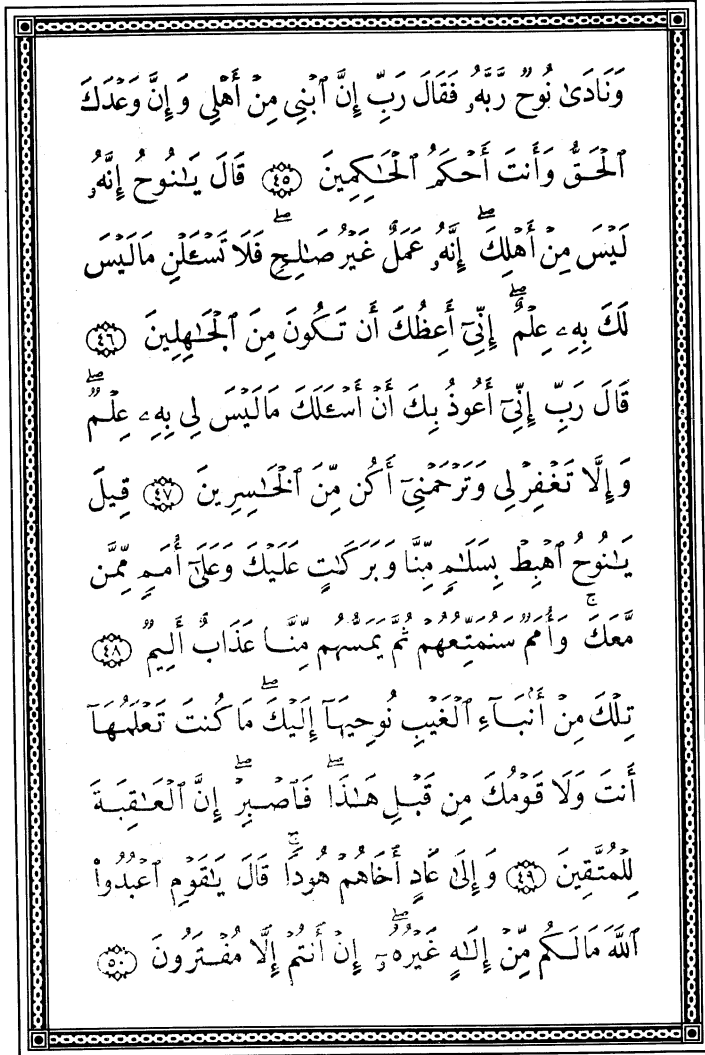 وَنَادَىٰ نُوحٌ رَّبَّهُۥ فَقَالَ رَبِّ إِنَّ ٱبْنِى مِنْ أَهْلِى وَإِنَّ وَعْدَكَ
ٱلْحَقُّ وَأَنتَ أَحْكَمُ ٱلْحَـٰكِمِينَ ٤٥ قَالَ يَـٰنُوحُ إِنَّهُۥ
لَيْسَ مِنْ أَهْلِكَ ۖ إِنَّهُۥ عَمَلٌ غَيْرُ صَـٰلِحٍ ۖ فَلَا تَسْـَٔلْنِ مَا لَيْسَ
لَكَ بِهِۦ عِلْمٌ ۖ إِنِّىٓ أَعِظُكَ أَن تَكُونَ مِنَ ٱلْجَـٰهِلِينَ ٤٦
قَالَ رَبِّ إِنِّىٓ أَعُوذُ بِكَ أَنْ أَسْـَٔلَكَ مَا لَيْسَ لِى بِهِۦ عِلْمٌ ۖ
وَإِلَّا تَغْفِرْ لِى وَتَرْحَمْنِىٓ أَكُن مِّنَ ٱلْخَـٰسِرِينَ ٤٧ قِيلَ
يَـٰنُوحُ ٱهْبِطْ بِسَلَـٰمٍ مِّنَّا وَبَرَكَـٰتٍ عَلَيْكَ وَعَلَىٰٓ أُمَمٍ مِّمَّن
مَّعَكَ ۚ وَأُمَمٌ سَنُمَتِّعُهُمْ ثُمَّ يَمَسُّهُم مِّنَّا عَذَابٌ أَلِيمٌ ٤٨
تِلْكَ مِنْ أَنۢبَآءِ ٱلْغَيْبِ نُوحِيهَآ إِلَيْكَ ۖ مَا كُنتَ تَعْلَمُهَآ
أَنتَ وَلَا قَوْمُكَ مِن قَبْلِ هَـٰذَا ۖ فَٱصْبِرْ ۖ إِنَّ ٱلْعَـٰقِبَةَ
لِلْمُتَّقِينَ ٤٩ وَإِلَىٰ عَادٍ أَخَاهُمْ هُودًا ۚ قَالَ يَـٰقَوْمِ ٱعْبُدُوا۟
ٱللَّهَ مَا لَكُم مِّنْ إِلَـٰهٍ غَيْرُهُۥٓ ۖ إِنْ أَنتُمْ إِلَّا مُفْتَرُونَ ٥٠